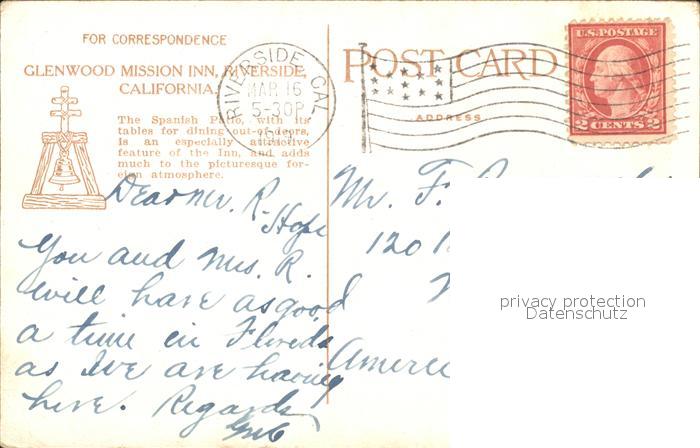 FOR CORRESPONDENCE
GLENWOOD MISSION INN, RIVERSIDE,
CALIFORNIA.
The Spanish Patio, with its
tables for dining out-of-doors,
is an especially attractive
feature of the Inn, and adds
much to the picturesque for-
eign atmosphere.
RIVERSIDE, CAL.
MAR 16
5-30P
POST CARD
ADDRESS
U.S. POSTAGE
2 CENTS 2
Dear Mr. R-
Hope
You and Mrs. R.
will have as good
a time in Florida
as we are having
here. Regards
Mr. F.
120
Americ
privacy protection
Datenschutz